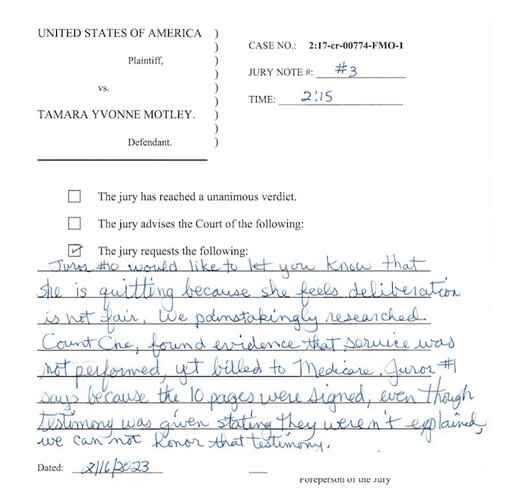 UNITED STATES OF AMERICA )
Plaintiff, )
vs. )
TAMARA YVONNE MOTLEY. )
Defendant. )
CASE NO.: 2:17-cr-00774-FMO-1
JURY NOTE #: #3
TIME: 2:15
The jury has reached a unanimous verdict.
The jury advises the Court of the following:
The jury requests the following:
Juror #10 would like to let you know that
she is quitting because she feels deliberation
is not fair. We painstakingly researched
Count One, found evidence that service was
not performed, yet billed to Medicare. Juror #1
says because the 10 pages were signed, even though
testimony was given stating they weren't explained,
we can not honor that testimony.
Dated: 2/16/2023
Foreperson of the Jury